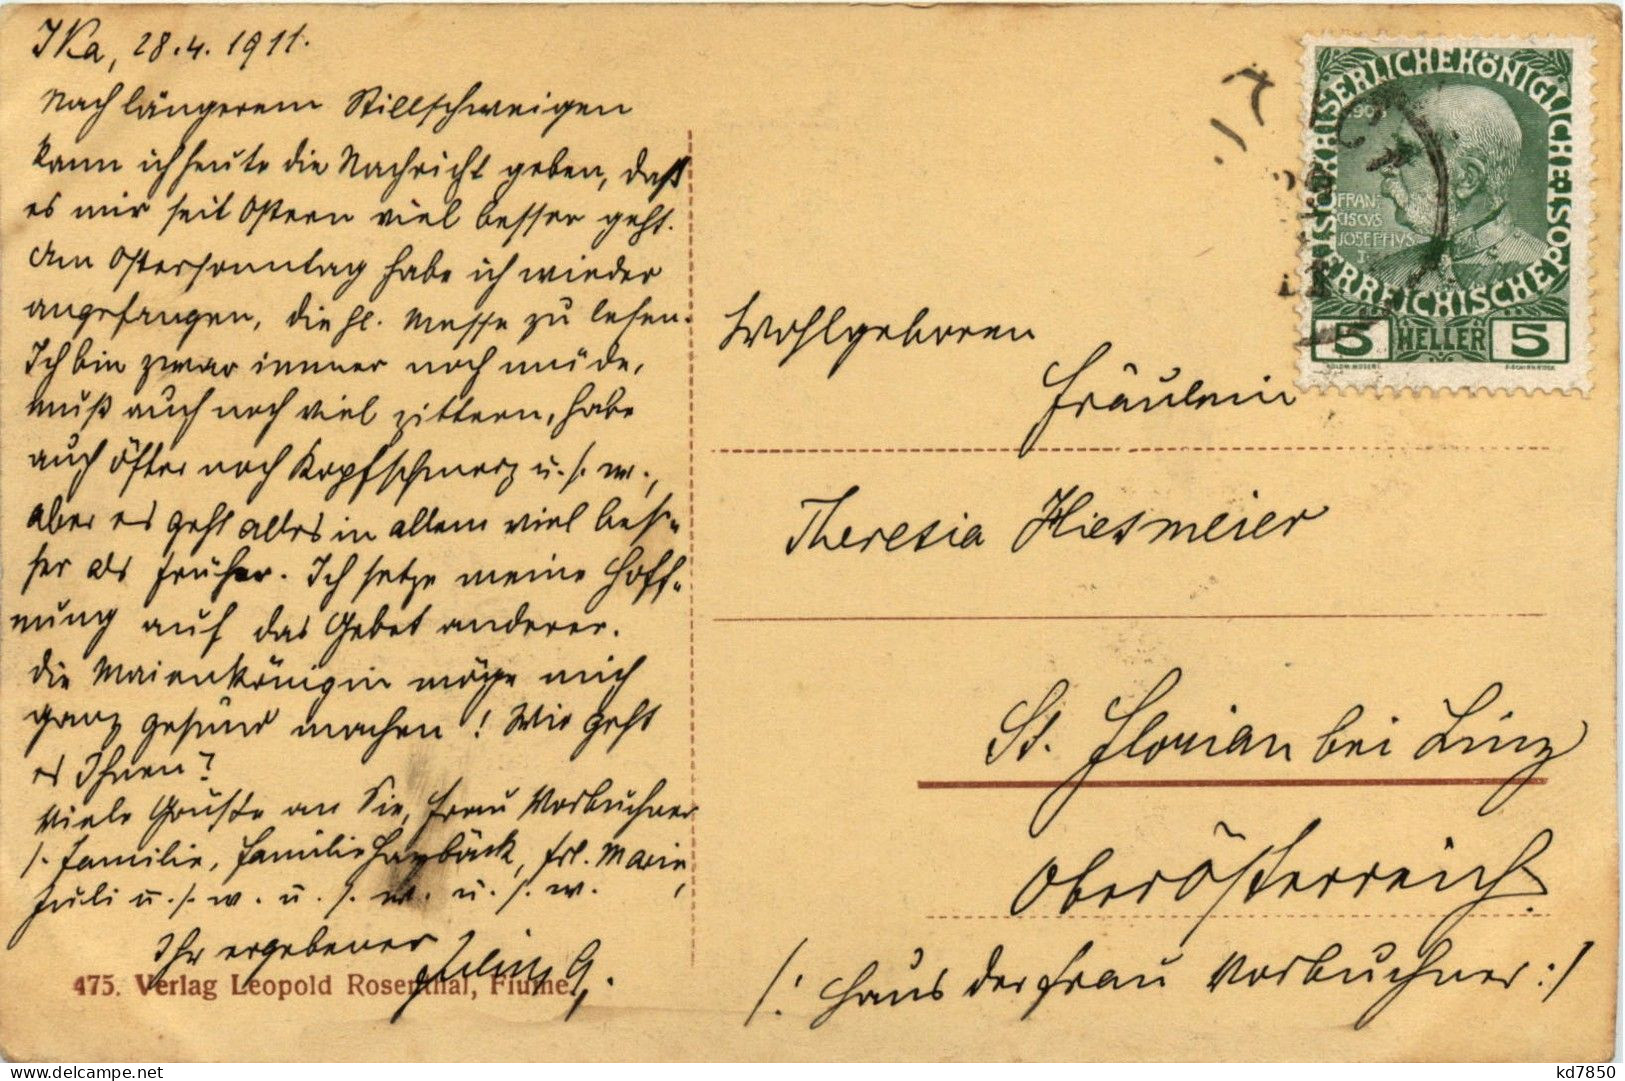 Ika, 28.4.1911.
Nach längerem Stillschweigen
kann ich heute die Nachricht geben, daß
es mir seit Ostern viel besser geht.
Am Ostersonntag habe ich wieder
angefangen, die hl. Messe zu lesen.
Ich bin zwar immer noch müde,
muß auch noch viel zittern, habe
auch öfter noch Kopfschmerz u. s. w.,
aber es geht alles in allem viel bes-
ser als früher. Ich setze meine Hoff-
nung auf das Gebet anderer.
Die Maienkönigin möge mich
ganz gesund machen! Wie geht
es Ihnen?
Viele Grüße an Sie, Frau Vorbuchner
s. Familie, Familie Haybäck, Frl. Marie,
Juli u. s. w. u. s. w. u. s. w.
Ihr ergebener
475. Verlag Leopold Rosenthal, Fiume.
KAISERLICHE KÖNIGLICHE ÖSTERREICHISCHE POST
1908
FRAN
CISCVS
JOSEPHVS
I
5 HELLER 5
Wohlgeboren
Fräulein
Theresia Hiesmeier
St. Florian bei Linz
Oberösterreich.
/: Haus der Frau Vorbuchner :/
kd7850